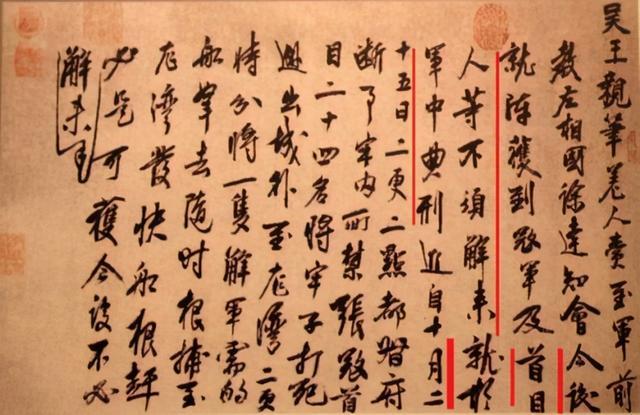 吳王親筆差人賫至軍前
教左相國徐達知會今後
就陣獲到敵軍及首目
人等不須解来就於
軍中典刑近自十月二
十五日二更二點都督府
断事牢内所禁張敵首
目二十四名將牢子打死
越出城外至龙灣二更
時分將一隻解軍需的
船拏去隨时根捕至
龙灣發快船根趕
必是可獲今後不必
解来